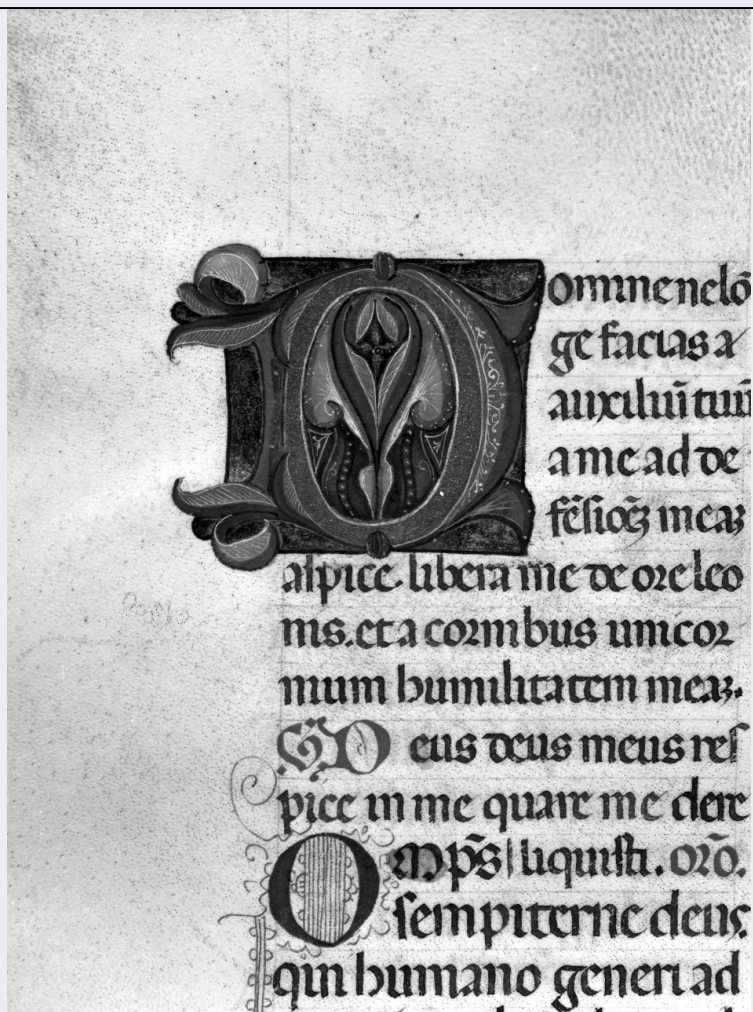 Domine ne lō
ge facias a
auxiluī tuū
a me ad de
fēsioēȝ meaȝ
aspice. libera me de ore leo
nis. et a cornibus unicor
nium humilitatem meaȝ.
Deus deus meus res
pice in me quare me dere
Omp̄s liquisti. orō.
sempiterne deus
qui humano generi ad